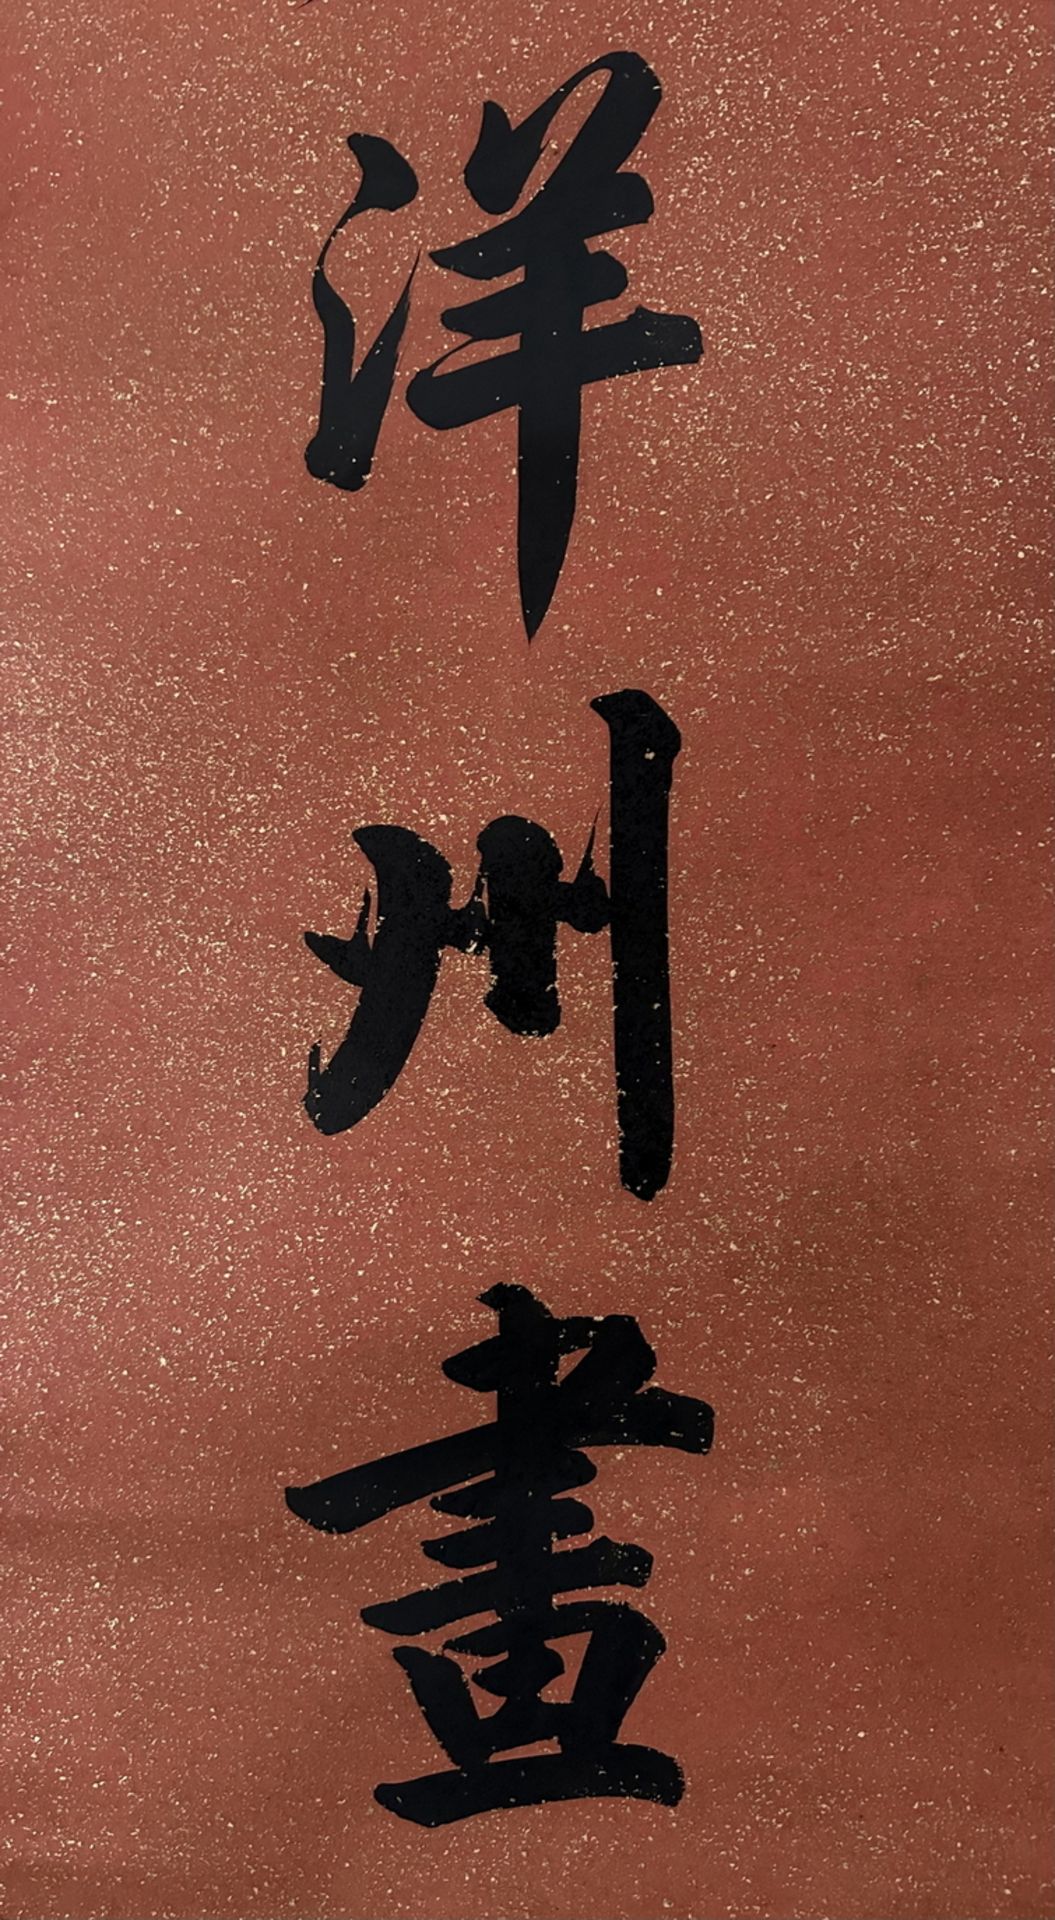 洋州畫